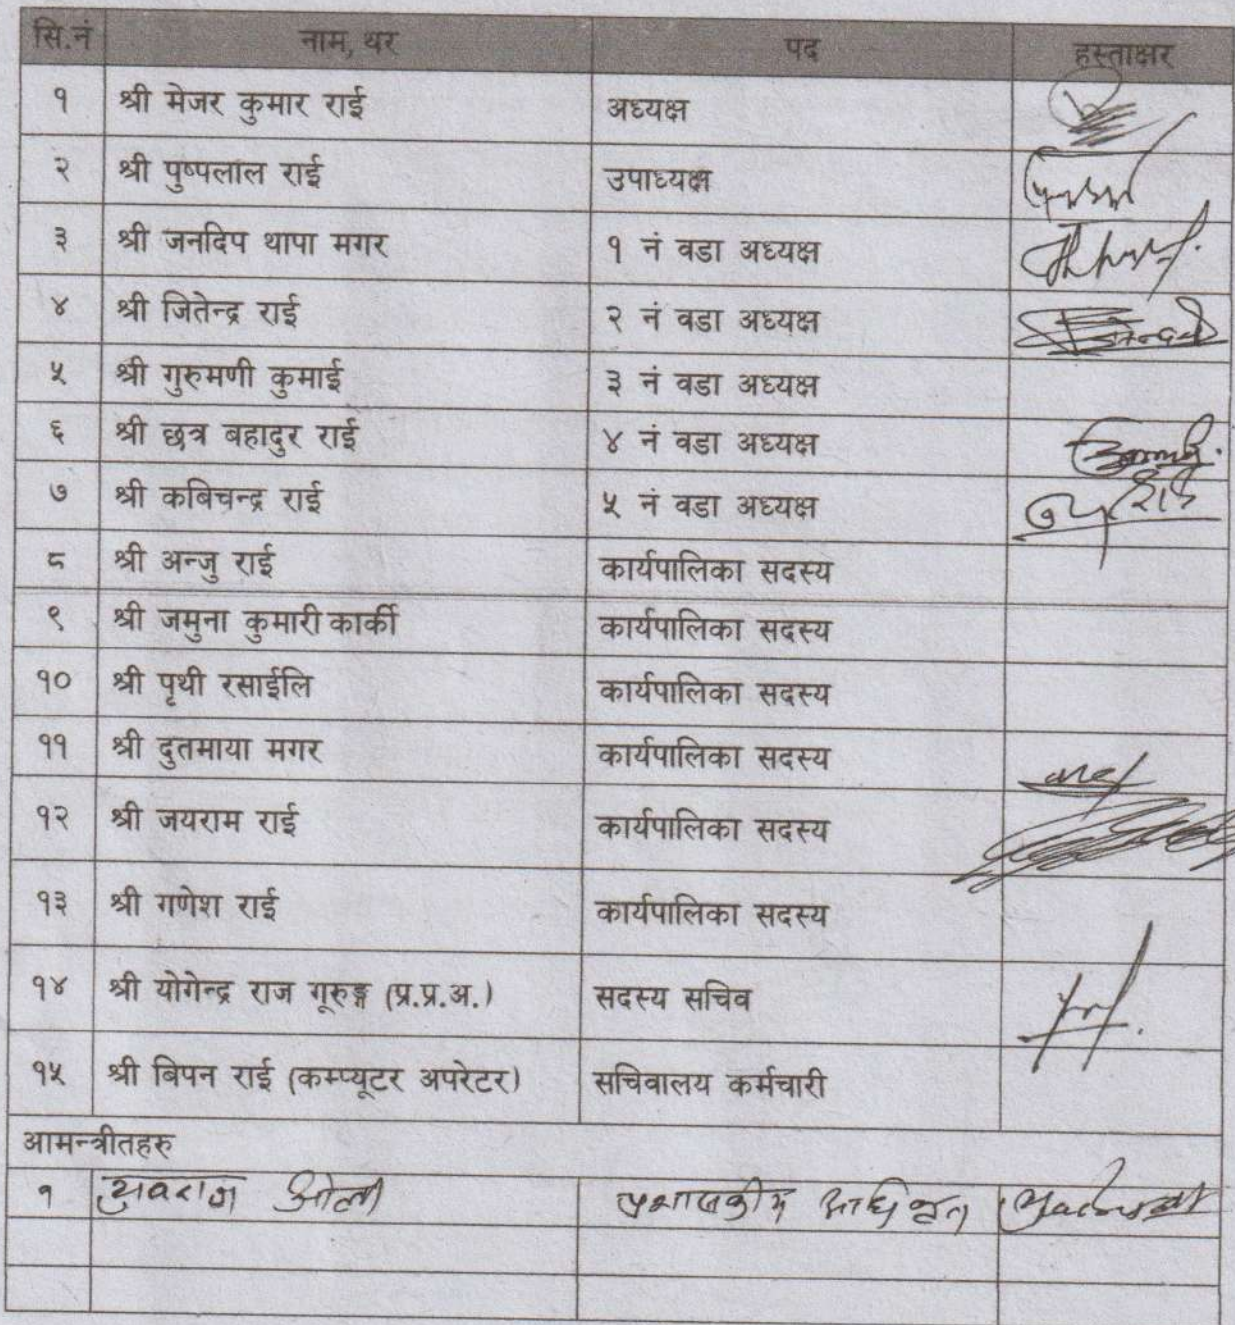 सि.नं नाम, थर पद हस्ताक्षर
१ श्री मेजर कुमार राई अध्यक्ष
२ श्री पुष्पलाल राई उपाध्यक्ष
३ श्री जनदिप थापा मगर १ नं वडा अध्यक्ष
४ श्री जितेन्द्र राई २ नं वडा अध्यक्ष
५ श्री गुरुमणी कुमाई ३ नं वडा अध्यक्ष
६ श्री छत्र बहादुर राई ४ नं वडा अध्यक्ष
७ श्री कबिचन्द्र राई ५ नं वडा अध्यक्ष
८ श्री अन्जु राई कार्यपालिका सदस्य
९ श्री जमुना कुमारी कार्की कार्यपालिका सदस्य
१० श्री पृथी रसाईलि कार्यपालिका सदस्य
११ श्री दुतमाया मगर कार्यपालिका सदस्य
१२ श्री जयराम राई कार्यपालिका सदस्य
१३ श्री गणेश राई कार्यपालिका सदस्य
१४ श्री योगेन्द्र राज गूरुङ्ग (प्र.प्र.अ.) सदस्य सचिव
१५ श्री बिपन राई (कम्प्यूटर अपरेटर) सचिवालय कर्मचारी
आमन्त्रीतहरु
१ युवराज ओली प्रशासकीय अधिकृत